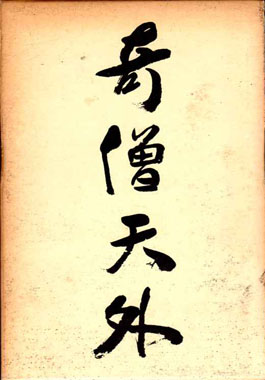 奇僧天外